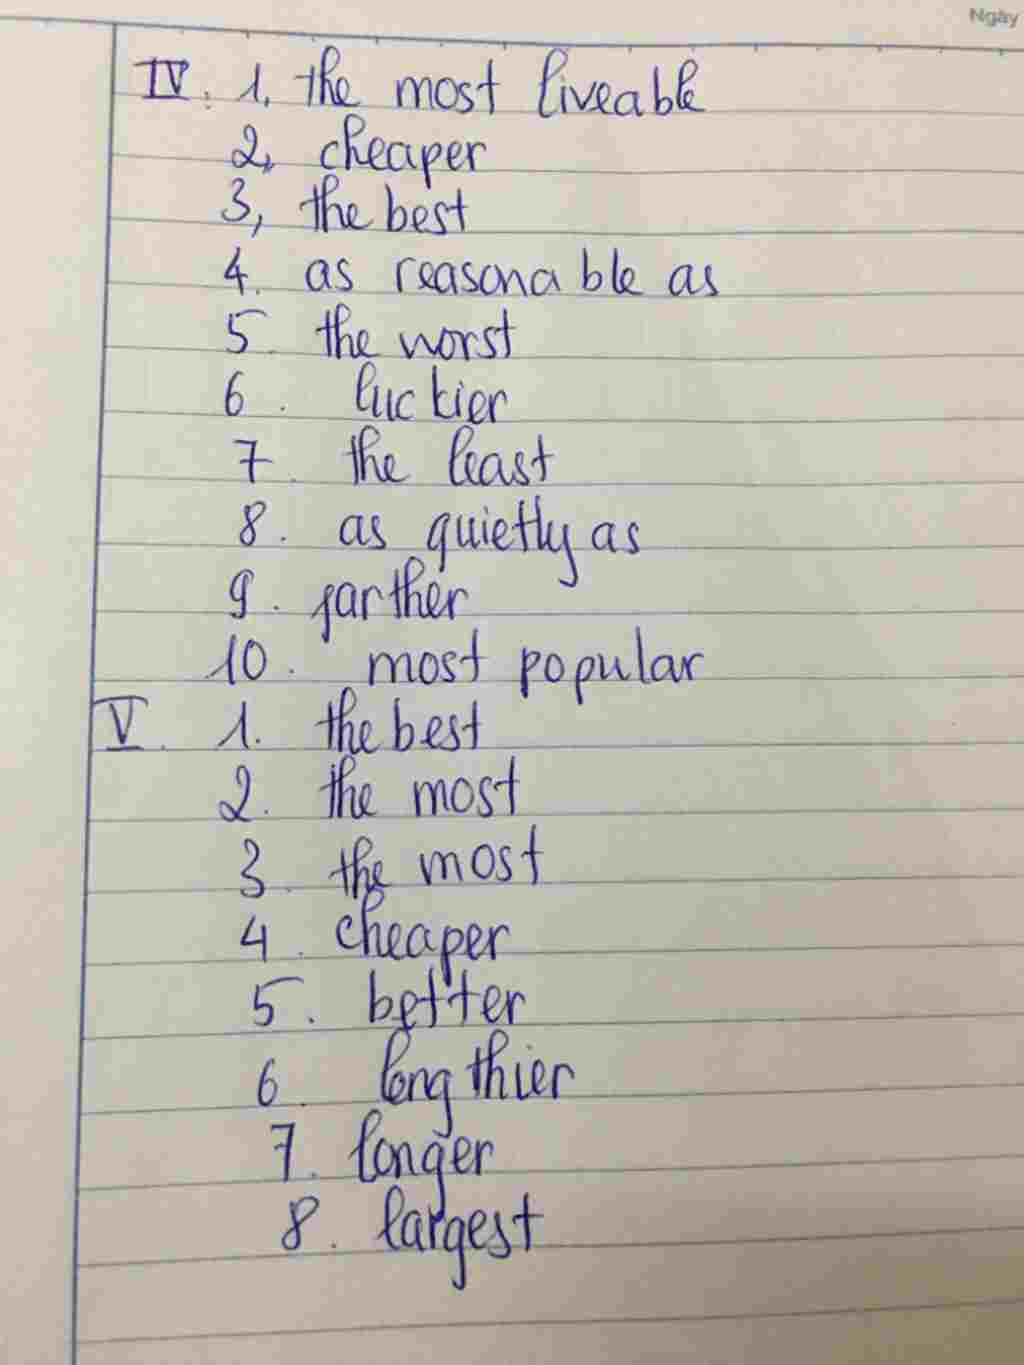 Ngày
IV. 1, the most liveable
2, cheaper
3, the best
4. as reasonable as
5. the worst
6. luckier
7. the least
8. as quietly as
9. farther
10. most popular
V. 1. the best
2. the most
3. the most
4. cheaper
5. better
6. longthier
7. longer
8. largest